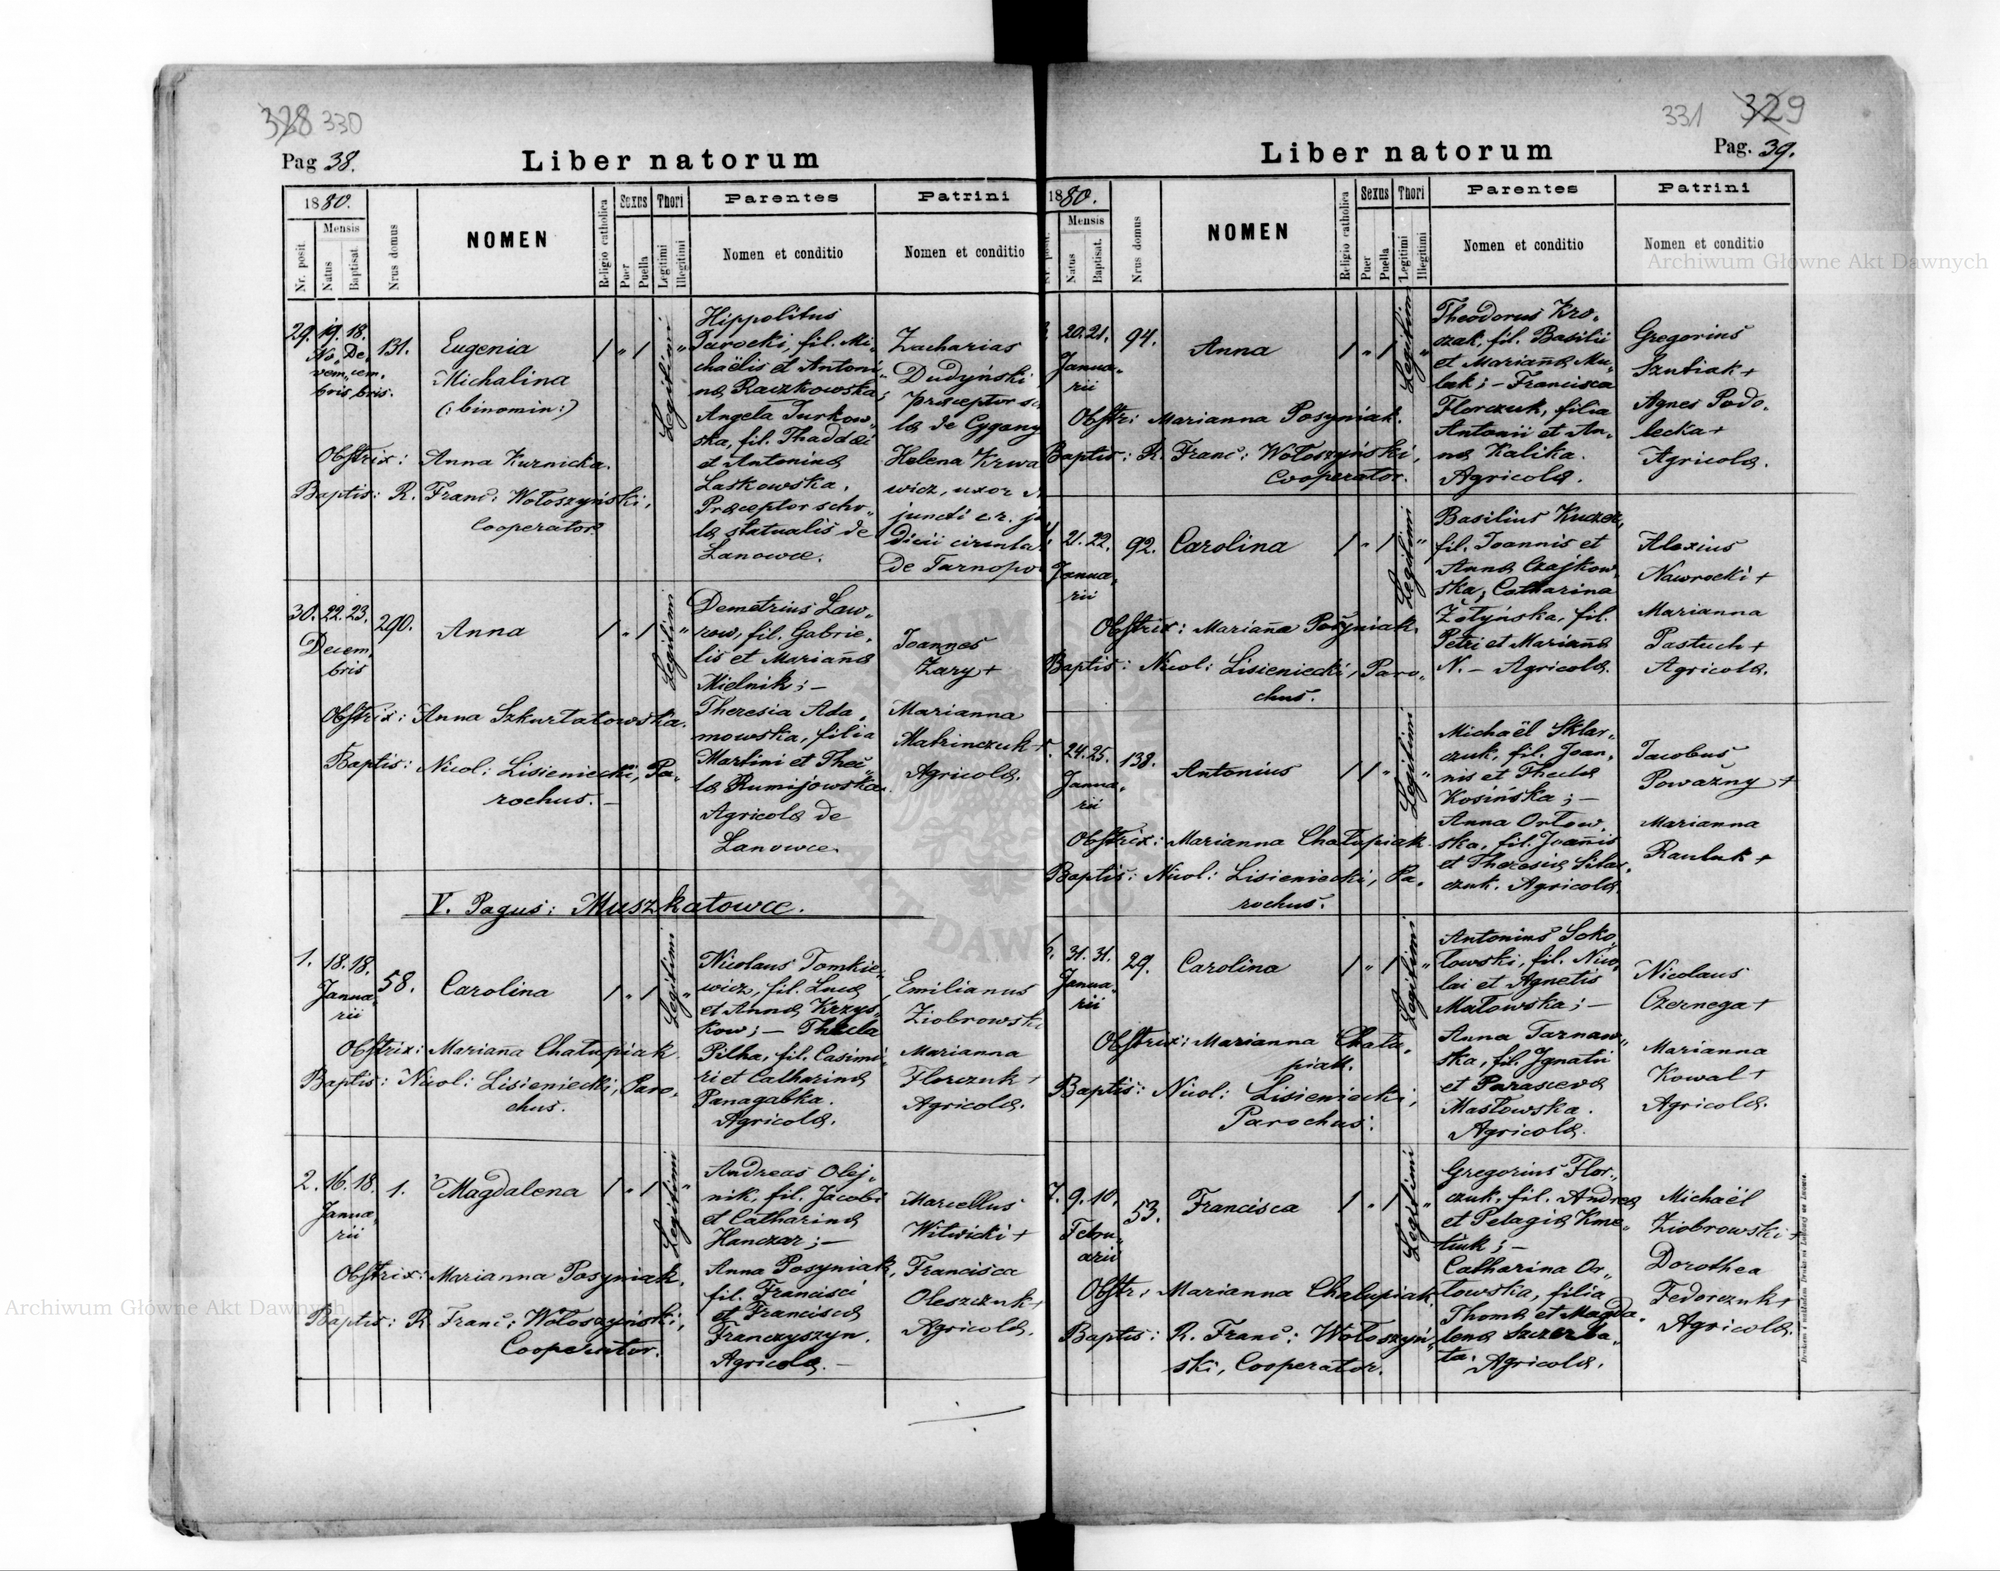 328 330
Pag 38.
Liber natorum
1880.
Nr. posit.
Mensis
Natus
Baptisat.
Nrus domus
NOMEN
Religio catholica
Sexus
Puer
Puella
Thori
Legitimi
Illegitimi
Parentes
Nomen et conditio
Patrini
Nomen et conditio
29.
19. 18.
No„ De„
vem„ cem„
bris bris.
131.
Eugenia
Michalina
(: binomin:)
Obstrix: Anna Kurnicka.
Baptis: R. Franc: Wołoszyński,
Cooperator.
1 „ 1
Legitimi
Hippolitus
Turocki, fil. Mi„
chaëlis et Antoni„
na Raczkowska;
Angela Turkow„
ska, fil. Thaddæi
et Antonina
Laskowska.
Præceptor scho„
læ statualis de
Lanowce.
Zacharias
Dudyński
præceptor
læ de Cygany
Helena
wicz, uxor
juncti c. r.
dicii
de Tarnopo
30.
22. 23.
Decem„
bris
290.
Anna
Obstrix: Anna Szkurłatowska.
Baptis: Nicol: Lisieniecki, Pa„
rochus.
1 „ 1
Legitimi
Demetrius Law„
row, fil. Gabrie„
lis et Marianna
Mielnik; –
Theresia Ada„
mowska, filia
Martini et Thec„
la Rumijowska.
Agricolæ de
Lanowce.
Joannes
Zary +
Marianna
Matrinczuk +
Agricolæ.
V. Pagus: Muszkatowce.
1.
18. 18.
Janua„
rii
58.
Carolina
Obstrix: Marianna Chałupiak
Baptis: Nicol: Lisieniecki, Paro„
chus.
1 „ 1
Legitimi
Nicolaus Tomkie„
wicz, fil. Lucæ
et Anna Krzys„
kow; – Thecla
Pilha, fil. Casimi„
ri et Catharina
Panagabka.
Agricolæ.
Emilianus
Ziobrowski
Marianna
Florczuk +
Agricolæ.
2.
16. 18.
Janua„
rii
1.
Magdalena
Obstrix: Marianna Posyniak.
Baptis: R. Franc: Wołoszyński,
Cooperator.
1 „ 1
Legitimi
Andreas Olej„
nik, fil. Jacobi
et Catharina
Hanczar; –
Anna Posyniak,
fil. Francisci
et Francisca
Franczyszyn.
Agricolæ. –
Marcellus
Witwicki +
Francisca
Oleszczuk +
Agricolæ.
331 329
Pag. 39.
Liber natorum
1880.
Nr. posit.
Mensis
Natus
Baptisat.
Nrus domus
NOMEN
Religio catholica
Sexus
Puer
Puella
Thori
Legitimi
Illegitimi
Parentes
Nomen et conditio
Patrini
Nomen et conditio
20. 21.
Janua„
rii
94.
Anna
Obstri: Marianna Posyniak.
Baptis: R. Franc: Wołoszyński,
Cooperator.
1 „ 1
Legitimi
Theodorus Kro„
czak, fil. Basilii
et Marianna Mu„
lak; – Francisca
Florczuk, filia
Antonii et An„
na Kalika.
Agricolæ.
Gregorius
Szutiak +
Agnes Podo„
lecka +
Agricolæ.
21. 22.
Janua„
rii
92.
Carolina
Obstrix: Marianna Posyniak.
Baptis: Nicol: Lisieniecki, Paro„
chus.
1 „ 1
Legitimi
Basilius Kuczer,
fil. Joannis et
Anna Czajkow„
ska; Catharina
Żołyńska, fil.
Petri et Marianna
N. – Agricolæ.
Alexius
Nawrocki +
Marianna
Pastuch +
Agricolæ.
24. 25.
Janua„
rii
138.
Antonius
Obstrix: Marianna Chałupiak.
Baptis: Nicol: Lisieniecki, Pa„
rochus.
1 1 „
Legitimi
Michaël Sklar„
czuk, fil. Joan„
nis et Thecla
Kosińska; –
Anna Orłow„
ska, fil. Joannis
et Theresia
czuk. Agricolæ
Jacobus
Poważny +
Marianna
Rauluk +
6.
31. 31.
Janua„
rii
29.
Carolina
Obstrix: Marianna Chału„
piak.
Baptis: Nicol: Lisieniecki,
Parochus.
1 „ 1
Legitimi
Antonius Soko„
łowski, fil. Nico„
lai et Agnetis
Małowska; –
Anna Tarnaw„
ska, fil. Ignatii
et Parasceva
Masłowska.
Agricolæ.
Nicolaus
Czernega +
Marianna
Kowal +
Agricolæ.
7.
9. 10.
Febru„
arii
53.
Francisca
Obstr: Marianna Chałupiak.
Baptis: R. Franc: Wołoszyń„
ski, Cooperator.
1 „ 1
Legitimi
Gregorius Flor„
czuk, fil. Andreæ
et Pelagia Kme„
tiuk; –
Catharina Or„
łowska, filia
Thomæ et Magda„
lena Szczerba„
ta. Agricolæ.
Michaël
Ziobrowski +
Dorothea
Fedorczuk +
Agricolæ.
Archiwum Główne Akt Dawnych
Archiwum Główne Akt Dawnych